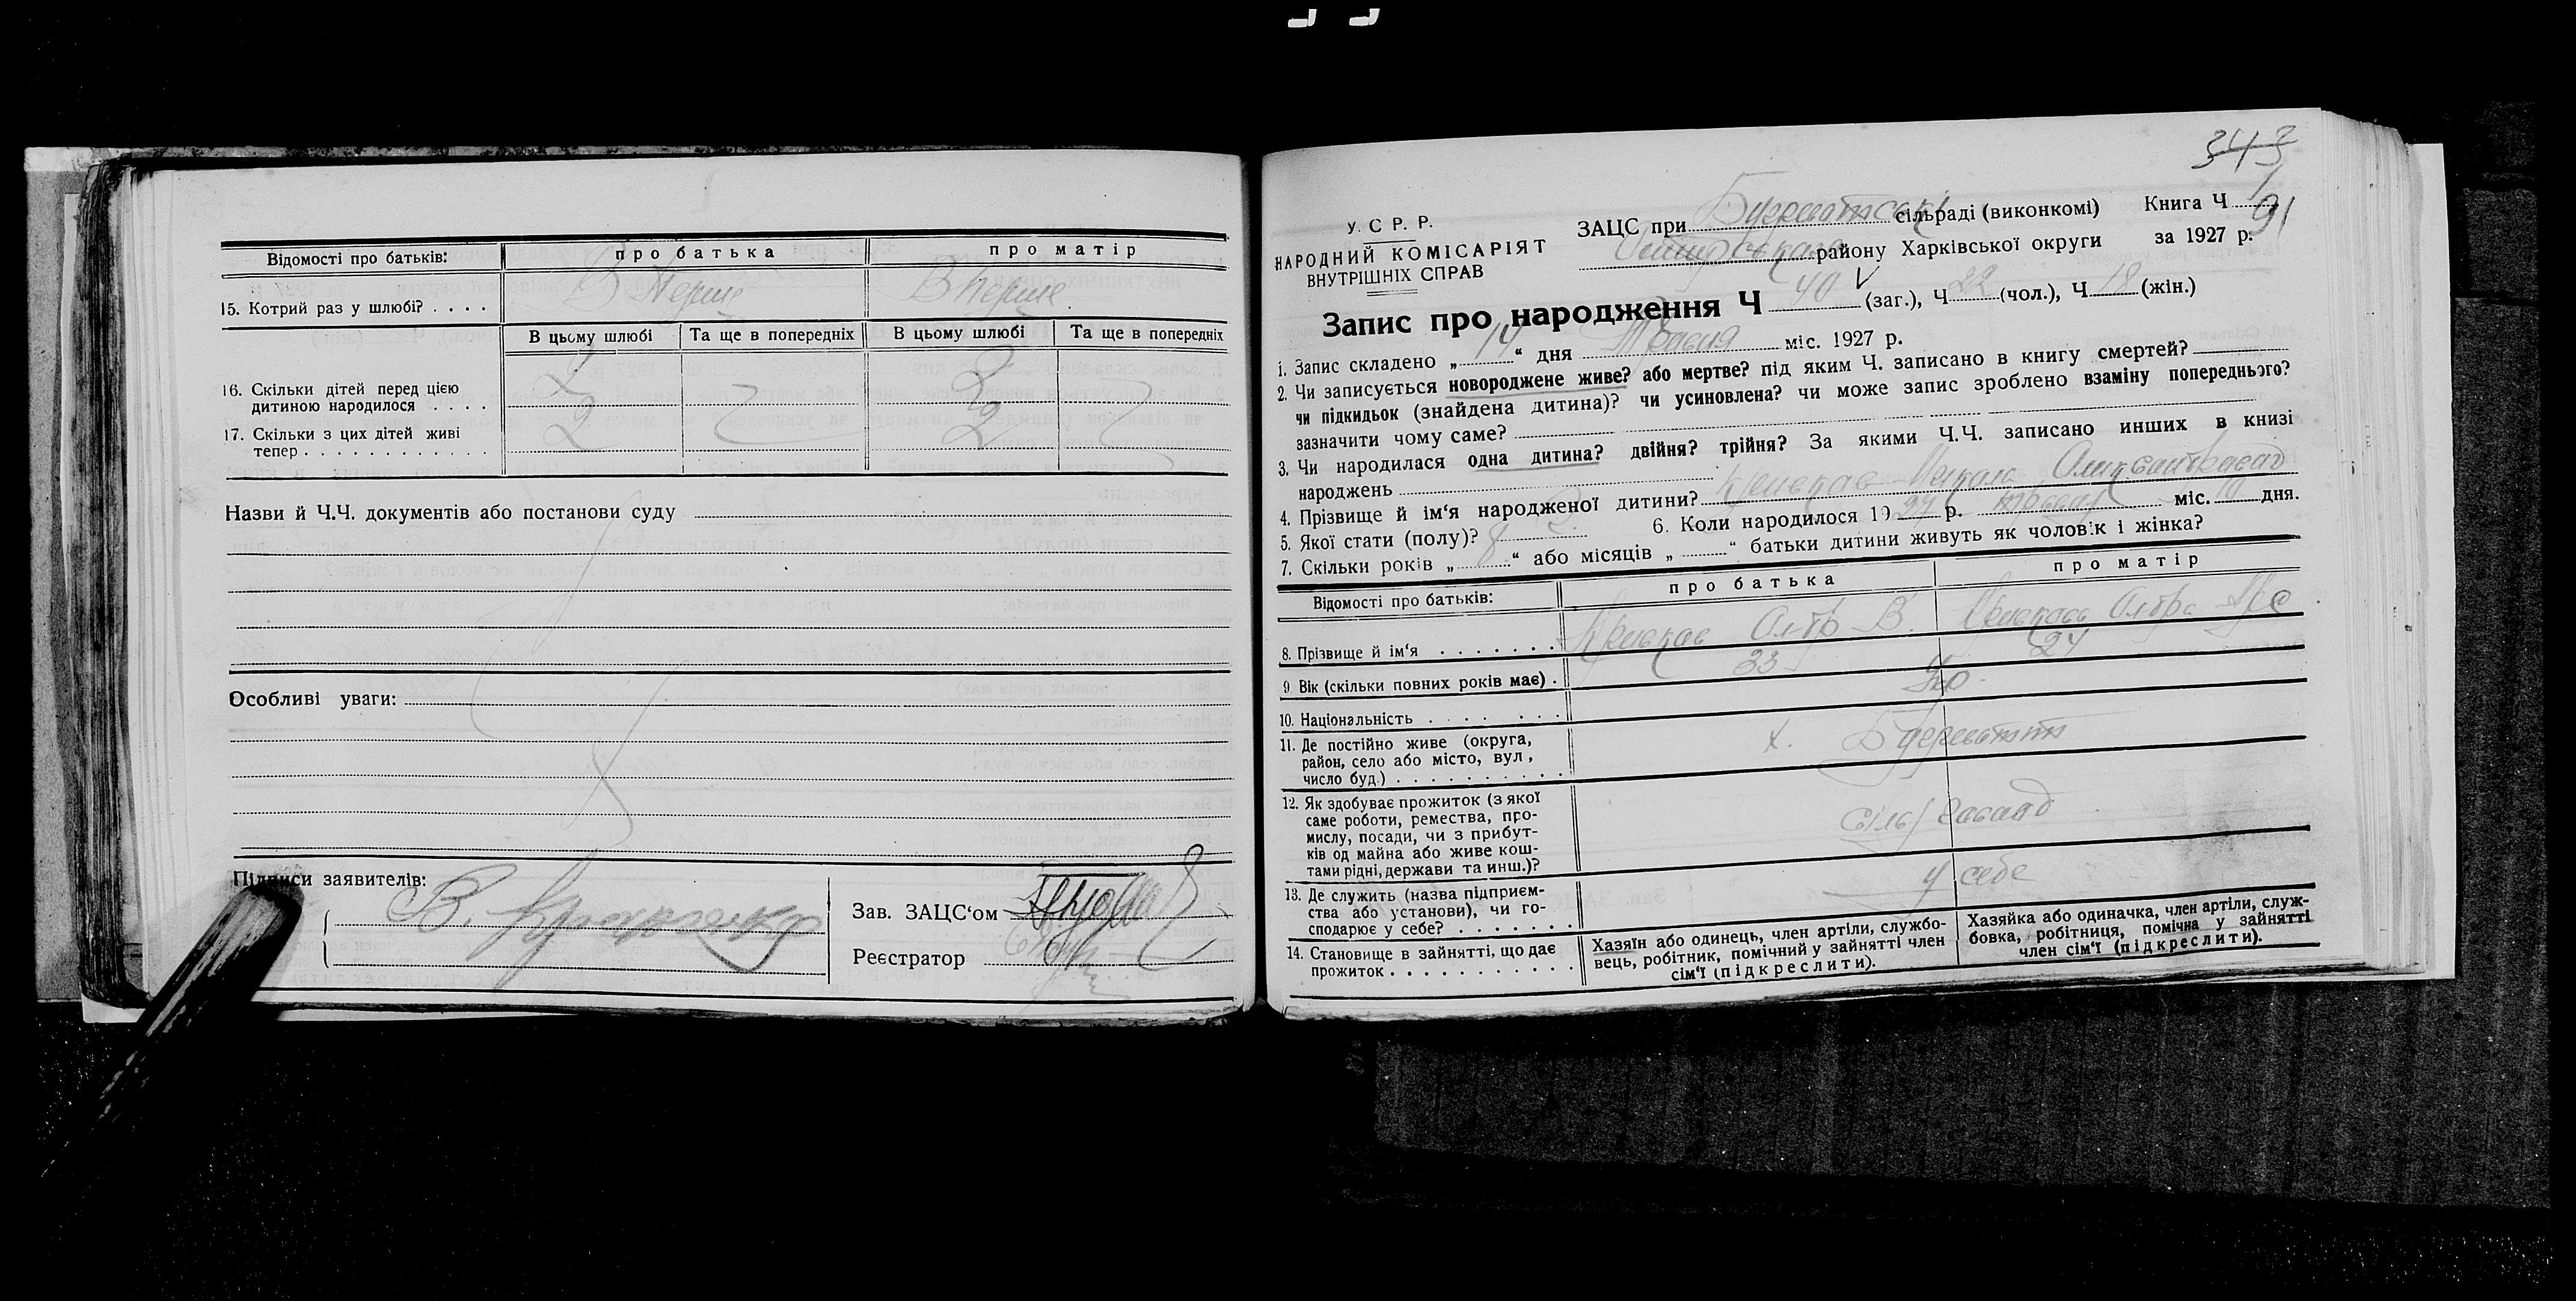 Відомості про батьків: про батька про матір
15. Котрий раз у шлюбі? . . . . В перше В перше
В цьому шлюбі Та ще в попередніх В цьому шлюбі Та ще в попередніх
16. Скільки дітей перед цією
дитиною народилося . . . . 2 2
17. Скільки з цих дітей живі
тепер . . . . . . . . . . . . 2 2
Назви й Ч.Ч. документів або постанови суду
Особливі уваги:
Підписи заявителів:
В.
Зав. ЗАЦС‘ом
Реєстратор
343
1
91
У. С. Р. Р.
НАРОДНИЙ КОМІСАРІЯТ
ВНУТРІШНІХ СПРАВ
ЗАЦС при сільраді (виконкомі) Книга Ч
району Харківської округи за 1927 р.
Запис про народження Ч 40 (заг.), Ч 22 (чол.), Ч 18 (жін.)
1. Запис складено „ 14 “ дня Травня міс. 1927 р.
2. Чи записується новороджене живе? або мертве? під яким Ч. записано в книгу смертей?
чи підкидьок (знайдена дитина)? чи усиновлена? чи може запис зроблено взаміну попереднього?
зазначити чому саме?
3. Чи народилася одна дитина? двійня? трійня? За якими Ч.Ч. записано инших в книзі
народжень
4. Прізвище й ім‘я народженої дитини?
5. Якої стати (полу)? 6. Коли народилося 1927 р. травня міс. 10 дня.
7. Скільки років „ 8 “ або місяців „ “ батьки дитини живуть як чоловік і жінка?
Відомості про батьків: про батька про матір
8. Прізвище й ім‘я . . . . . . .
9. Вік (скільки повних років має) . 33 24
10. Національність . . . . . . . Укр.
11. Де постійно живе (округа,
район, село або місто, вул.,
число буд.) . . . . . . . . . . х.
12. Як здобуває прожиток (з якої
саме роботи, ремества, про-
мислу, посади, чи з прибут-
ків од майна або живе кош-
тами рідні, держави та инш.)?
13. Де служить (назва підприєм-
ства або установи), чи го-
сподарює у себе? . . . . . . . у себе
14. Становище в зайнятті, що дає
прожиток . . . . . . . . . . .
Хазяїн або одинець, член артіли, службо-
вець, робітник, помічний у зайнятті член
сім‘ї (підкреслити).
Хазяйка або одиначка, член артіли, служ-
бовка, робітниця, помічна у зайнятті
член сім‘ї (підкреслити).